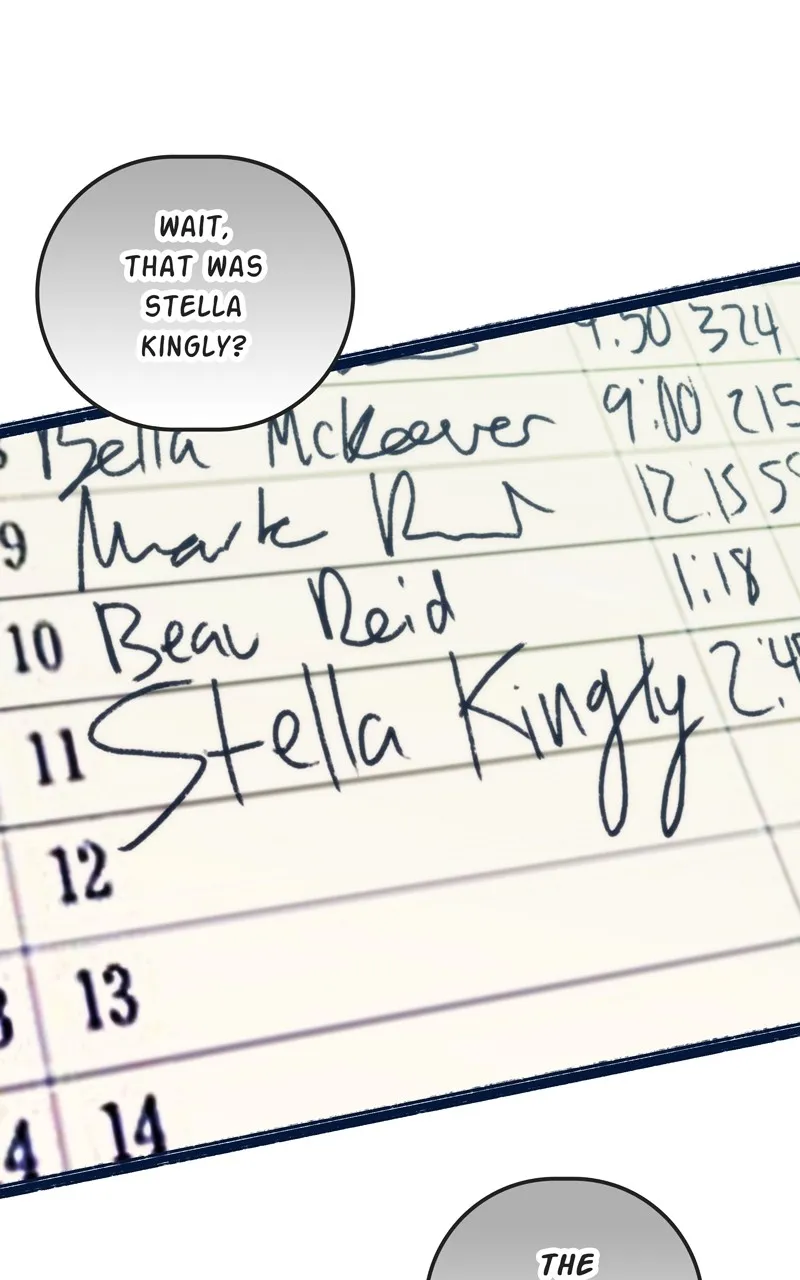 WAIT,
THAT WAS
STELLA
KINGLY?
9:30 324
Bella McKeever 9:00 215
9 Mark 12:15
10 Beau Reid 1:18
11 Stella Kingly
12
13
14
THE